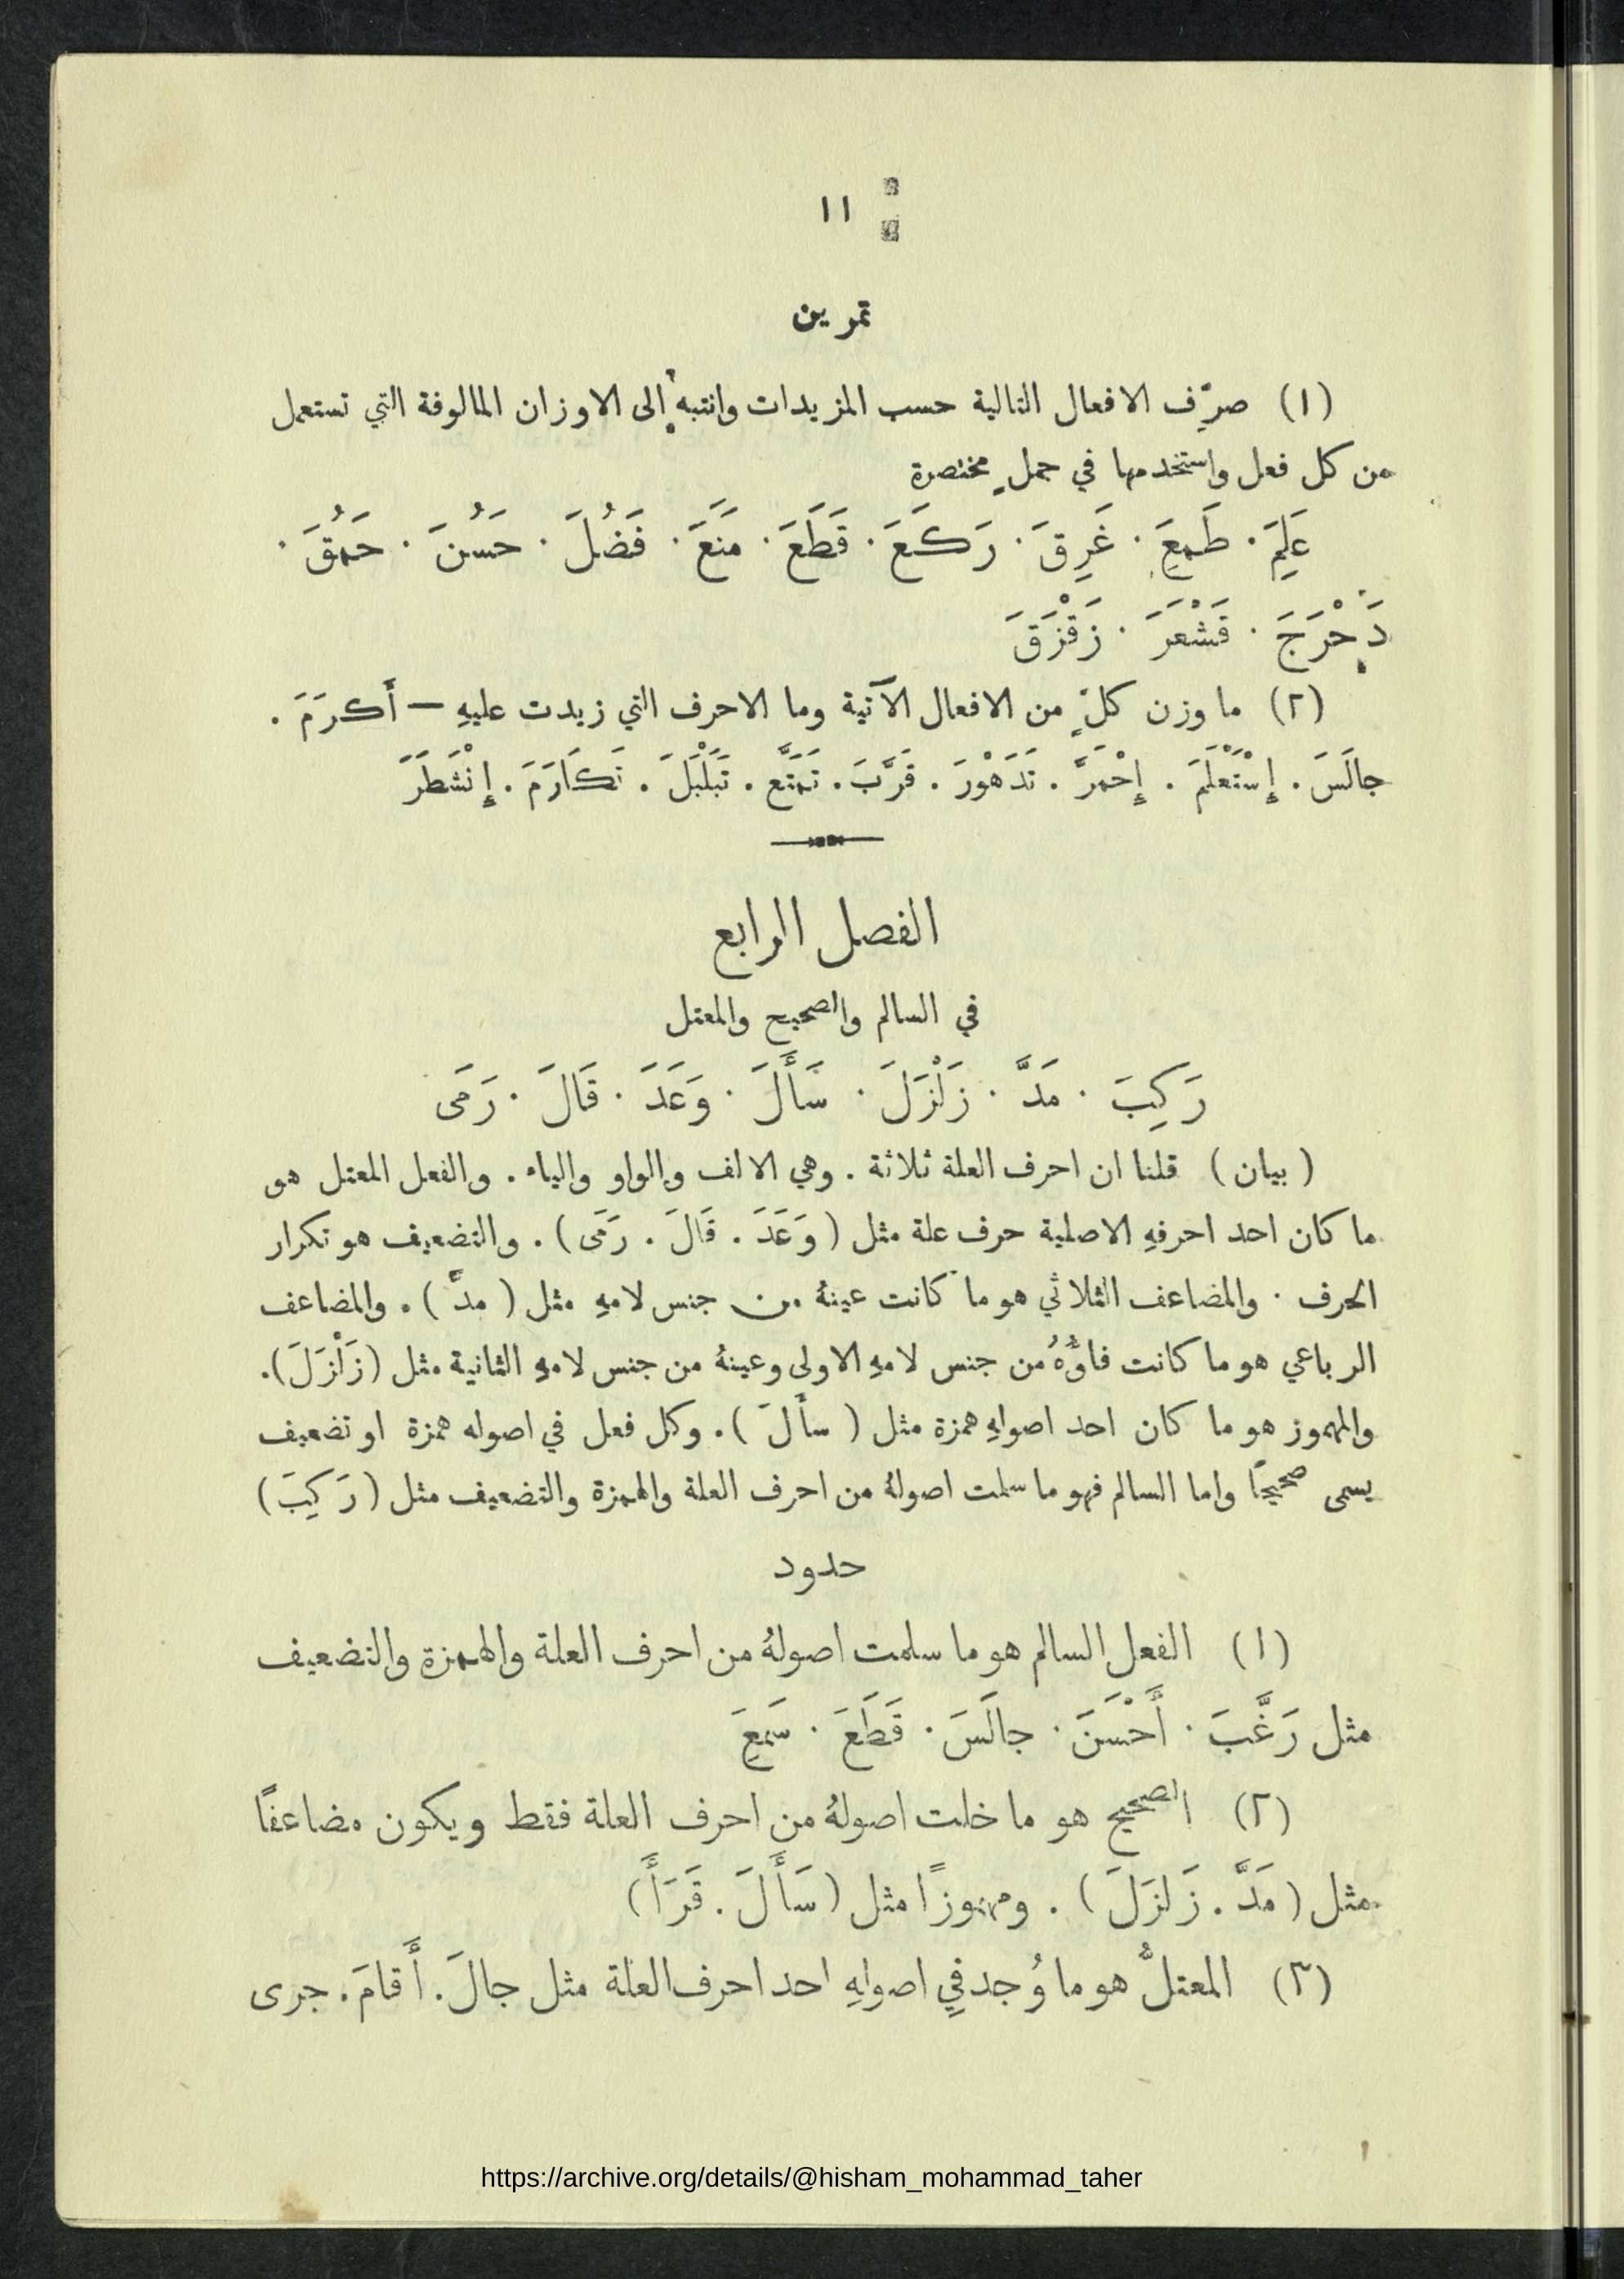 ١١
تمرين
(١) صرِّف الافعال التالية حسب المزيدات وانتبه إلى الاوزان المالوفة التي تستعمل
من كل فعل واستخدمها في جملٍ مختصرة
عَلِمَ · طَمِعَ · غَرِقَ · رَكَعَ · قَطَعَ · مَنَعَ · فَضُلَ · حَسُنَ · حَمُقَ ·
دَحْرَجَ · قَشْعَرَ · زَقْزَقَ
(٢) ما وزن كلّ من الافعال الآتية وما الاحرف التي زيدت عليهِ — أَكرَمَ .
جالَسَ . إِسْتَعْلَمَ . إِحْمَرَّ . تَدَهْوَرَ . قَرَّبَ . تَمَتَّع . تَبَلْبَلَ . تَكَارَمَ . إِنْشَطَرَ
الفصل الرابع
في السالم والصحيح والمعتل
رَكِبَ · مَدَّ · زَلْزَلَ · سَأَلَ · وَعَدَ · قَالَ · رَمَى
( بيان ) قلنا ان احرف العلة ثلاثة . وهي الالف والواو والياء . والفعل المعتل هو
ما كان احد احرفهِ الاصلية حرف علة مثل ( وَعَدَ . قَالَ . رَمَى ) . والتضعيف هو تكرار
الحرف · والمضاعف الثلاثي هو ما كانت عينهُ من جنس لامهِ مثل ( مدَّ ) . والمضاعف
الرباعي هو ما كانت فاؤُهُ من جنس لامهِ الاولى وعينهُ من جنس لامهِ الثانية مثل (زَلْزَلَ).
والمهموز هو ما كان احد اصولهِ همزة مثل ( سأَلَ ) . وكل فعل في اصوله همزة او تضعيف
يسمى صحيحًا واما السالم فهو ما سلمت اصولهُ من احرف العلة والهمزة والتضعيف مثل (رَكِبَ)
حدود
(١) الفعل السالم هو ما سلمت اصولهُ من احرف العلة والهمزة والتضعيف
مثل رَغَّبَ · أَحْسَنَ · جالَسَ · قَطَعَ · سَمِعَ
(٢) الصحيح هو ما خلت اصولهُ من احرف العلة فقط ويكون مضاعفًا
مثل ( مَدَّ . زَلزَلَ ) . ومهموزًا مثل ( سَأَلَ . قَرَأَ )
(٣) المعتلُّ هو ما وُجد في اصولهِ احد احرف العلة مثل جالَ . أَقامَ . جرى
https://archive.org/details/@hisham_mohammad_taher